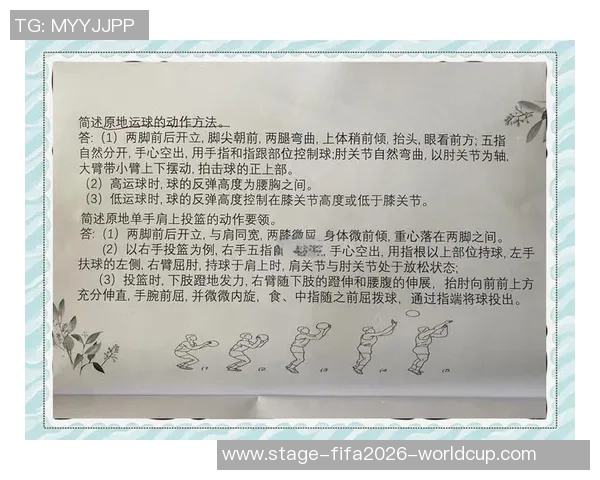 TG: MYYJJPP
简述原地运球的动作方法。
答:（1）两脚前后开立, 脚尖朝前, 两腿弯曲, 上体稍前倾, 抬头, 眼看前方; 五指
自然分开, 手心空出, 用手指和指跟部位控制球; 肘关节自然弯曲, 以肘关节为轴,
大臂带小臂上下摆动, 拍击球的正上部。
（2）高运球时, 球的反弹高度为腰胸之间。
（3）低运球时, 球的反弹高度控制在膝关节高度或低于膝关节。
简述原地单手肩上投篮的动作要领。
答:（1）两脚前后开立, 与肩同宽, 两膝微屈, 身体微前倾, 重心落在两脚之间。
（2）以右手投篮为例, 右手五指, 手心空出, 用指根以上部位持球, 左手
扶球的左侧, 右臂屈肘, 持球于肩上时, 肩关节与肘关节处于放松状态;
（3）投篮时, 下肢蹬地发力, 右臂随下肢的蹬伸和腰腹的伸展, 抬肘向前前上方
充分伸直, 手腕前屈, 并微微内旋, 食、中指随之前屈拨球, 通过指端将球投出。
(1 (2 (3 (4 (5
www.stage-fifa2026-worldcup.com